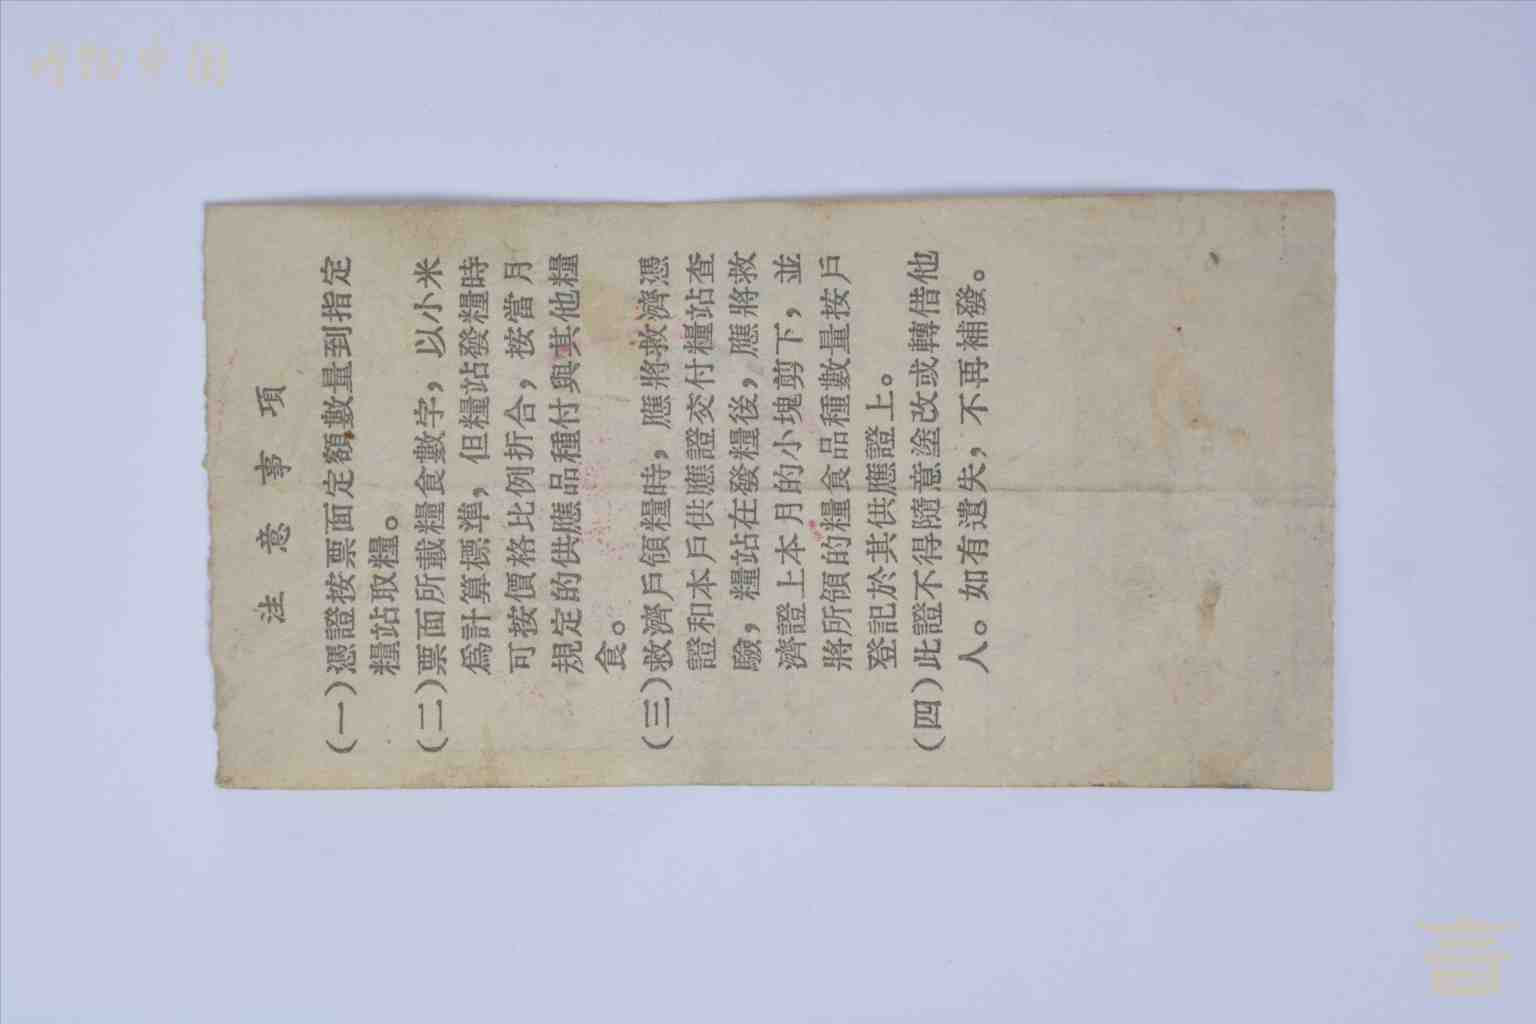 注意事項
(一)憑證按票面定額數量到指定
糧站取糧。
(二)票面所載糧食數字，以小米
爲計算標準，但糧站發糧時
可按價格比例折合，按當月
規定的供應品種付與其他糧
食。
(三)救濟戶領糧時，應將救濟憑
證和本戶供應證交付糧站查
驗，糧站在發糧後，應將救
濟證上本月的小塊剪下，並
將所領的糧食品種數量按戶
登記於其供應證上。
(四)此證不得隨意塗改或轉借他
人。如有遺失，不再補發。